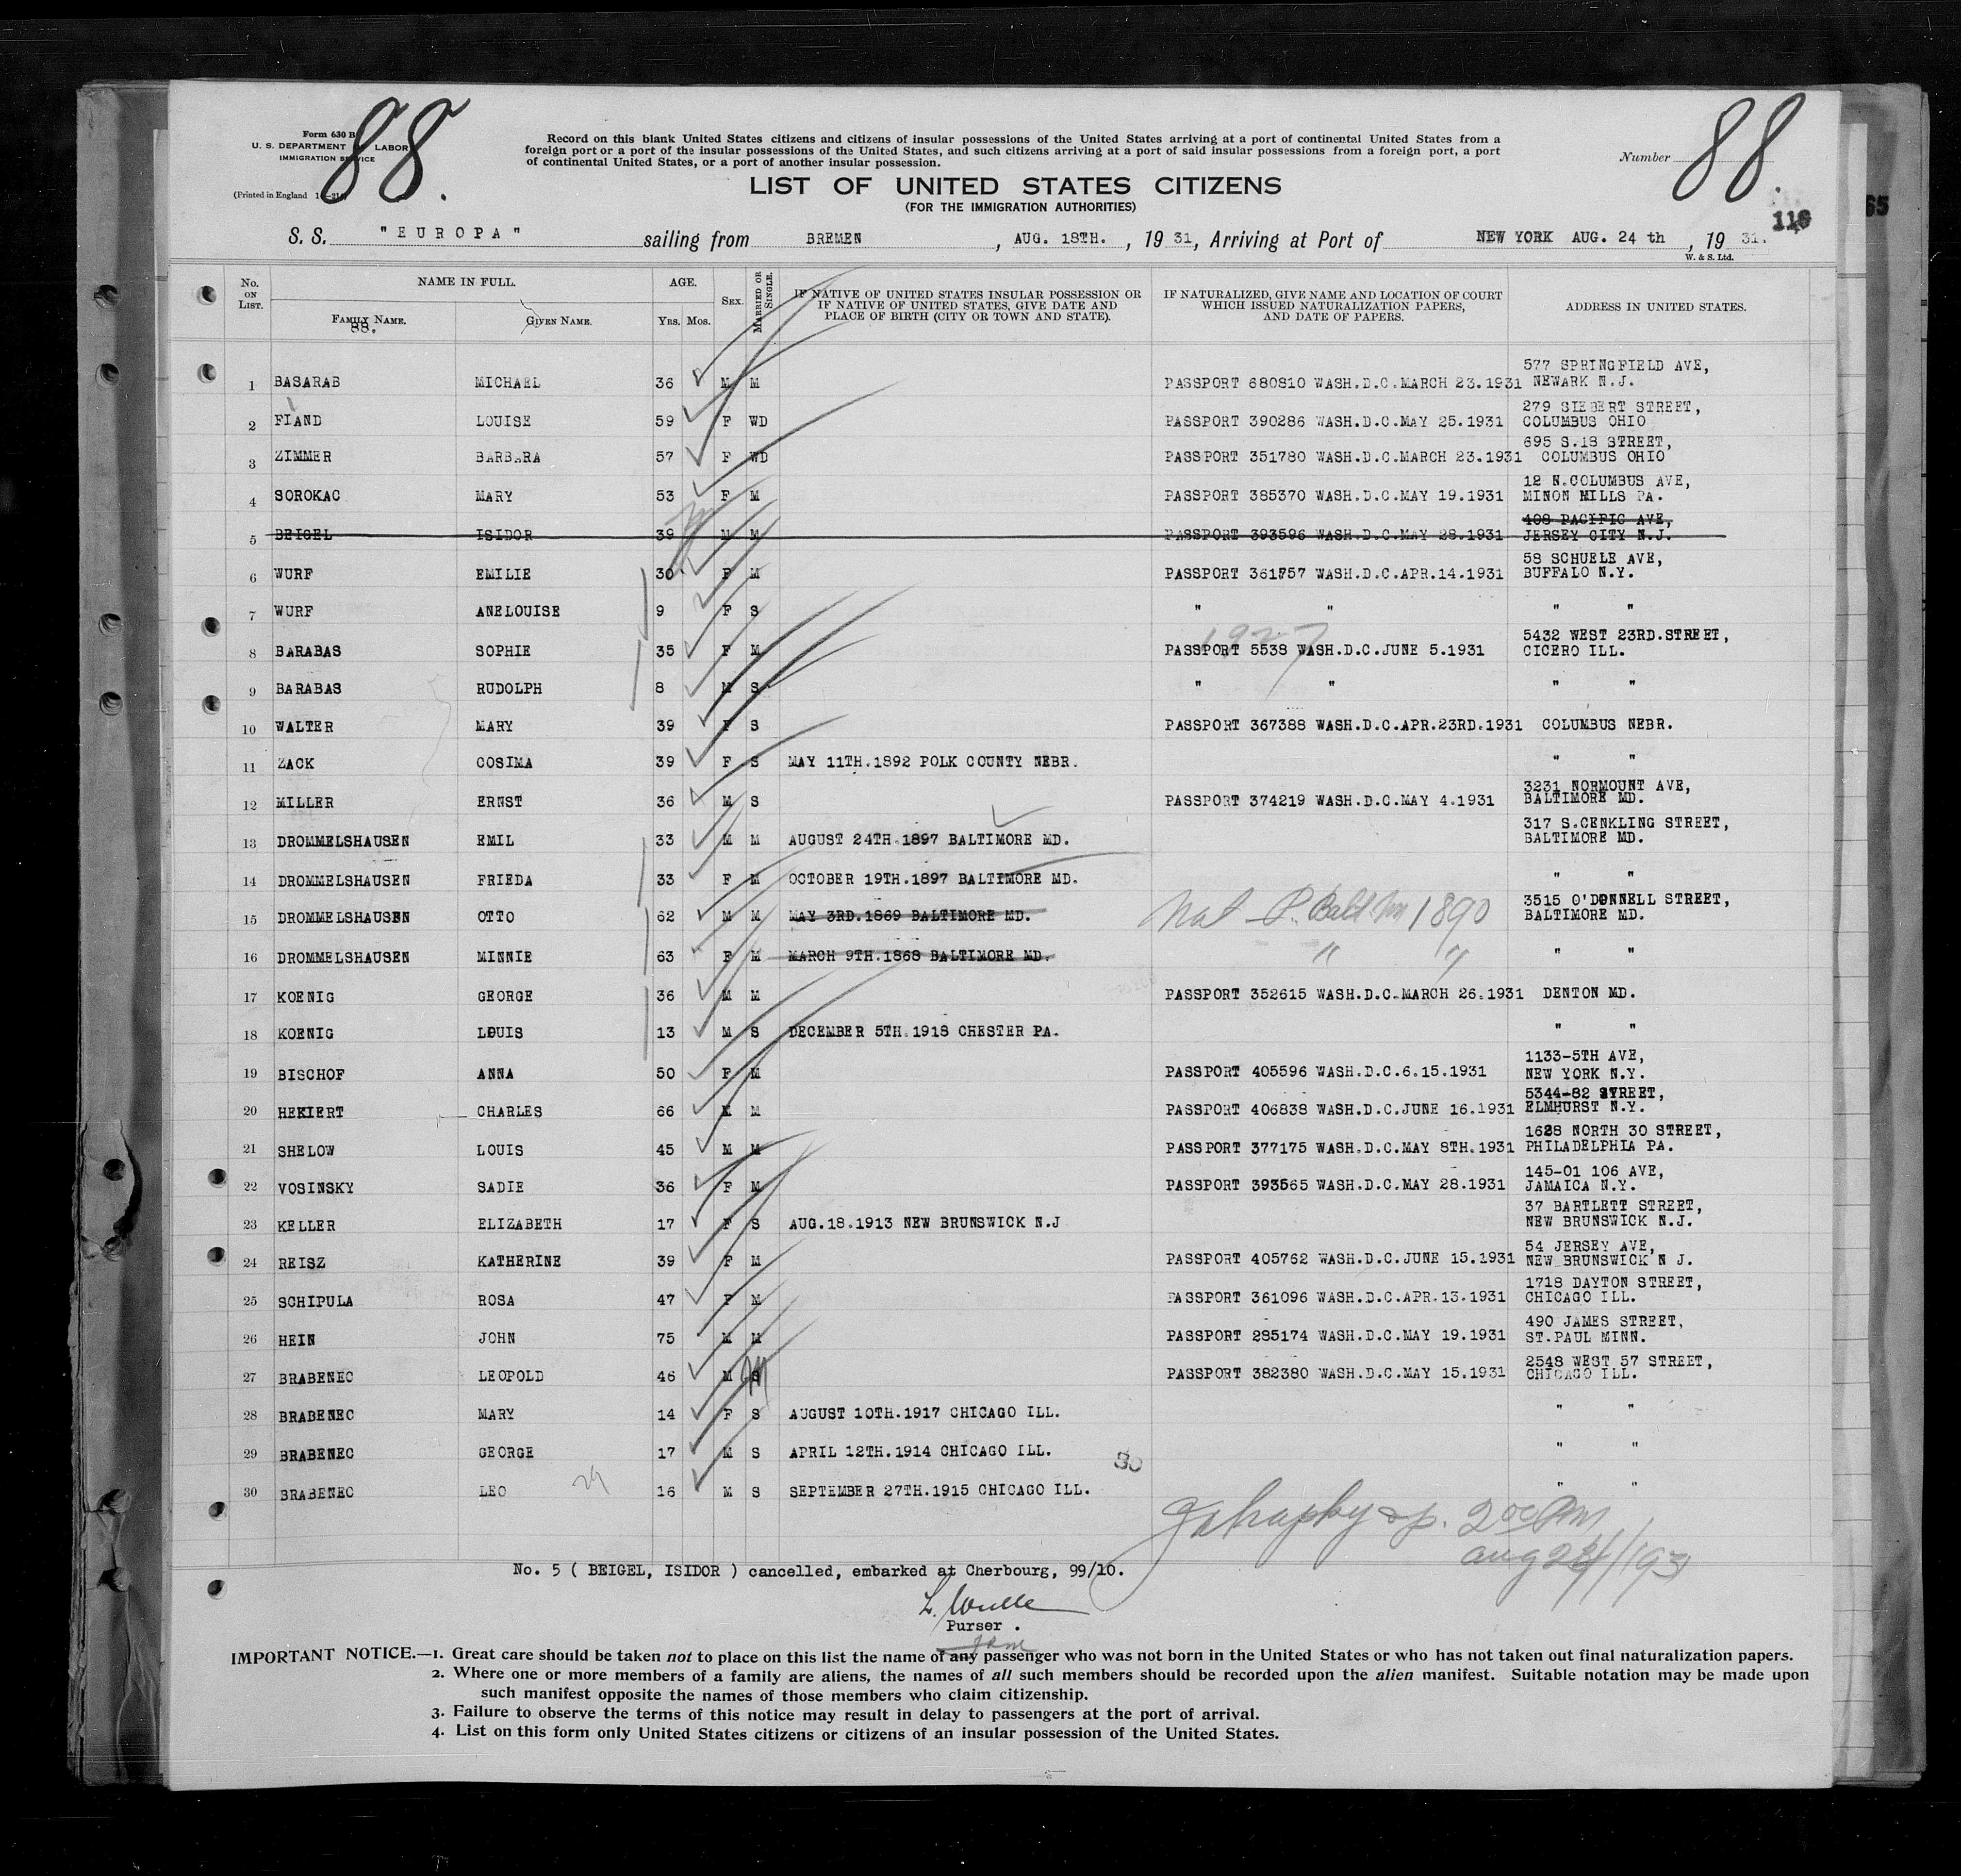 88.
88.
Form 630 B
U. S. DEPARTMENT LABOR
IMMIGRATION SERVICE
(Printed in England
Record on this blank United States citizens and citizens of insular possessions of the United States arriving at a port of continental United States from a
foreign port or a port of the insular possessions of the United States, and such citizens arriving at a port of said insular possessions from a foreign port, a port
of continental United States, or a port of another insular possession.
Number
LIST OF UNITED STATES CITIZENS
(FOR THE IMMIGRATION AUTHORITIES)
116
65
S. S. "EUROPA" sailing from BREMEN, AUG. 18TH., 19 31, Arriving at Port of NEW YORK AUG. 24 th, 19 31.
W. & S. Ltd.
No. ON LIST. NAME IN FULL. AGE. SEX. MARRIED OR SINGLE. IF NATIVE OF UNITED STATES INSULAR POSSESSION OR IF NATIVE OF UNITED STATES, GIVE DATE AND PLACE OF BIRTH (CITY OR TOWN AND STATE). IF NATURALIZED, GIVE NAME AND LOCATION OF COURT WHICH ISSUED NATURALIZATION PAPERS, AND DATE OF PAPERS. ADDRESS IN UNITED STATES.
FAMILY NAME. GIVEN NAME. YRS. MOS.
88.
577 SPRINGFIELD AVE,
1 BASARAB MICHAEL 36 M M PASSPORT 680810 WASH.D.C.MARCH 23.1931 NEWARK N.J.
279 SIEBERT STREET,
2 FIAND LOUISE 59 F WD PASSPORT 390286 WASH.D.C.MAY 25.1931 COLUMBUS OHIO
695 S.18 STREET,
3 ZIMMER BARBARA 57 F WD PASSPORT 351780 WASH.D.C.MARCH 23.1931 COLUMBUS OHIO
12 N.COLUMBUS AVE,
4 SOROKAC MARY 53 F M PASSPORT 385370 WASH.D.C.MAY 19.1931 MINON MILLS PA.
408 PACIFIC AVE,
5 BEIGEL ISIDOR 39 M M PASSPORT 393596 WASH.D.C.MAY 28.1931 JERSEY CITY N.J.
58 SCHUELE AVE,
6 WURF EMILIE 30 F M PASSPORT 361757 WASH.D.C.APR.14.1931 BUFFALO N.Y.
7 WURF ANELOUISE 9 F S " " " "
1927
5432 WEST 23RD.STREET,
8 BARABAS SOPHIE 35 F M PASSPORT 5538 WASH.D.C.JUNE 5.1931 CICERO ILL.
9 BARABAS RUDOLPH 8 M S " " " "
10 WALTER MARY 39 F S PASSPORT 367388 WASH.D.C.APR.23RD.1931 COLUMBUS NEBR.
11 ZACK COSIMA 39 F S MAY 11TH.1892 POLK COUNTY NEBR. " "
3231 NORMOUNT AVE,
12 MILLER ERNST 36 M S PASSPORT 374219 WASH.D.C.MAY 4.1931 BALTIMORE MD.
317 S.CENKLING STREET,
13 DROMMELSHAUSEN EMIL 33 M M AUGUST 24TH.1897 BALTIMORE MD. BALTIMORE MD.
14 DROMMELSHAUSEN FRIEDA 33 F M OCTOBER 19TH.1897 BALTIMORE MD. " "
3515 O'DONNELL STREET,
15 DROMMELSHAUSEN OTTO 62 M M MAY 3RD.1869 BALTIMORE MD. Nat 1890 BALTIMORE MD.
16 DROMMELSHAUSEN MINNIE 63 F M MARCH 9TH.1868 BALTIMORE MD. " " " "
17 KOENIG GEORGE 36 M M PASSPORT 352615 WASH.D.C.MARCH 26.1931 DENTON MD.
18 KOENIG LOUIS 13 M S DECEMBER 5TH.1918 CHESTER PA. " "
1133-5TH AVE,
19 BISCHOF ANNA 50 F M PASSPORT 405596 WASH.D.C.6.15.1931 NEW YORK N.Y.
5344-82 STREET,
20 HEKIERT CHARLES 66 M M PASSPORT 406838 WASH.D.C.JUNE 16.1931 ELMHURST N.Y.
1628 NORTH 30 STREET,
21 SHELOW LOUIS 45 M M PASSPORT 377175 WASH.D.C.MAY 8TH.1931 PHILADELPHIA PA.
145-01 106 AVE,
22 VOSINSKY SADIE 36 F M PASSPORT 393565 WASH.D.C.MAY 28.1931 JAMAICA N.Y.
37 BARTLETT STREET,
23 KELLER ELIZABETH 17 F S AUG.18.1913 NEW BRUNSWICK N.J NEW BRUNSWICK N.J.
54 JERSEY AVE,
24 REISZ KATHERINE 39 F M PASSPORT 405762 WASH.D.C.JUNE 15.1931 NEW BRUNSWICK N J.
1718 DAYTON STREET,
25 SCHIPULA ROSA 47 F M PASSPORT 361096 WASH.D.C.APR.13.1931 CHICAGO ILL.
490 JAMES STREET,
26 HEIN JOHN 75 M M PASSPORT 285174 WASH.D.C.MAY 19.1931 ST.PAUL MINN.
2548 WEST 57 STREET,
27 BRABENEC LEOPOLD 46 M S M PASSPORT 382380 WASH.D.C.MAY 15.1931 CHICAGO ILL.
28 BRABENEC MARY 14 F S AUGUST 10TH.1917 CHICAGO ILL. " "
29 BRABENEC GEORGE 17 M S APRIL 12TH.1914 CHICAGO ILL. " "
30 BRABENEC LEO 29 16 M S SEPTEMBER 27TH.1915 CHICAGO ILL. " "
30
No. 5 ( BEIGEL, ISIDOR ) cancelled, embarked at Cherbourg, 99/10.
Purser .
IMPORTANT NOTICE.—1. Great care should be taken not to place on this list the name of any passenger who was not born in the United States or who has not taken out final naturalization papers.
2. Where one or more members of a family are aliens, the names of all such members should be recorded upon the alien manifest. Suitable notation may be made upon
such manifest opposite the names of those members who claim citizenship.
3. Failure to observe the terms of this notice may result in delay to passengers at the port of arrival.
4. List on this form only United States citizens or citizens of an insular possession of the United States.